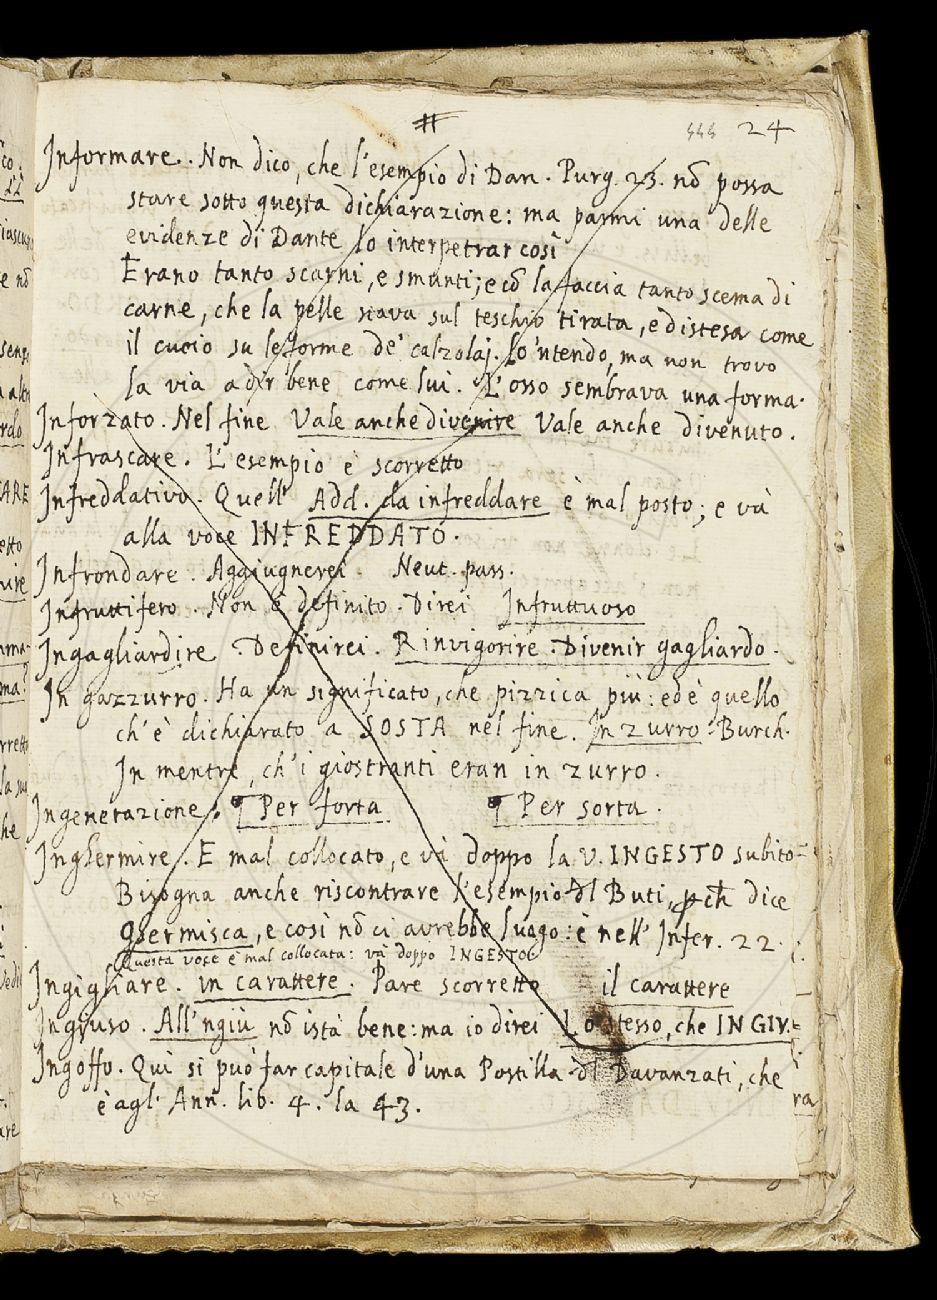 #
444 24
Informare. Non dico, che l'esempio di Dan. Purg. 23. nō possa
stare sotto questa dichiarazione: ma parmi una delle
evidenze di Dante lo interpetrar così
Erano tanto scarni, e smunti; e cō la faccia tanto scema di
carne, che la pelle stava sul teschio tirata, e distesa come
il cuoio su le forme de' calzolaj. Lo 'ntendo, ma non trovo
la via a dir bene come lui. L'osso sembrava una forma.
Inforzato. Nel fine Vale anche divenire Vale anche divenuto.
Infrascare. L'esempio è scorretto
Infreddativo. Quell' Add. da infreddare è mal posto; e và
alla voce INFREDDATO.
Infrondare. Aggiugnerei. Neut. pass.
Infruttifero. Non è definito. Direi Infruttuoso
Ingagliardire. Definirei. Rinvigorire. Divenir gagliardo.
In gazzurro. Ha un significato, che pizzica più: ed è quello
ch'è dichiarato a SOSTA nel fine. In zurro. Burch.
In mentre, ch'i giostranti eran in zurro.
Ingenerazione. ¶ Per forta ¶ Per sorta.
Inghermire. E mal collocato, e và doppo la V. INGESTO subito=
Bisogna anche riscontrare l'esempio dl Buti, p ch̄ dice
Ghermisca, e così nō ci avrebbe luogo: è nell' Infer. 22.
Questa voce è mal collocata: và doppo INGESTO
Ingigliare. in carattere. Pare scorretto il carattere
Ingiuso. All'ngiù nō istà bene: ma io direi Lo stesso, che INGIV.=
Ingoffo. Qui si può far capitale d'una Postilla dl Davanzati, che
è agl' Ann. lib. 4. la 43.